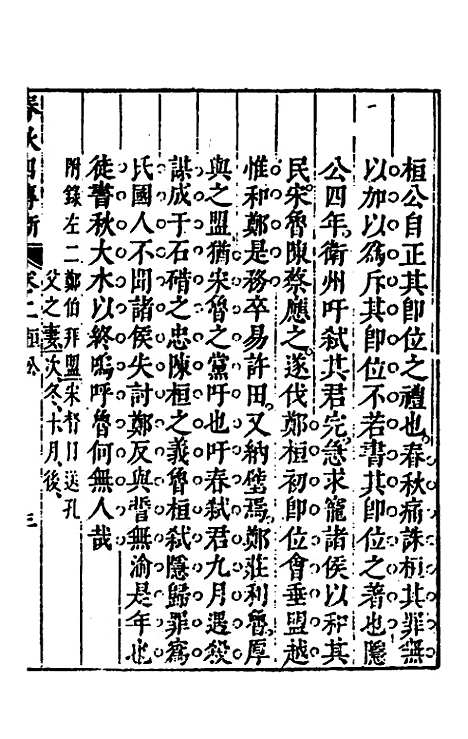 桓公自正其卽位之禮也春秋痛誅桓其罪無
以加以爲斥其卽位不若書其卽位之著也隱
公四年衛州吁弑其君完急求寵諸侯以和其
民宋魯陳蔡應之遂伐鄭桓初卽位會垂盟越
惟和鄭是務卒易許田又納璧焉鄭莊利魯厚
與之盟猶宋魯之黨吁也吁春弑君九月遇殺
謀成于石碏之忠陳桓之義魯桓弑隱歸罪寪
氏國人不聞諸侯失討鄭反與誓無渝是年也
徒書秋大水以終嗚呼魯何無人哉
附錄左二鄭伯拜盟宋督目送孔
父之妻次冬十月後
春秋四傳斷 卷二 桓公 三